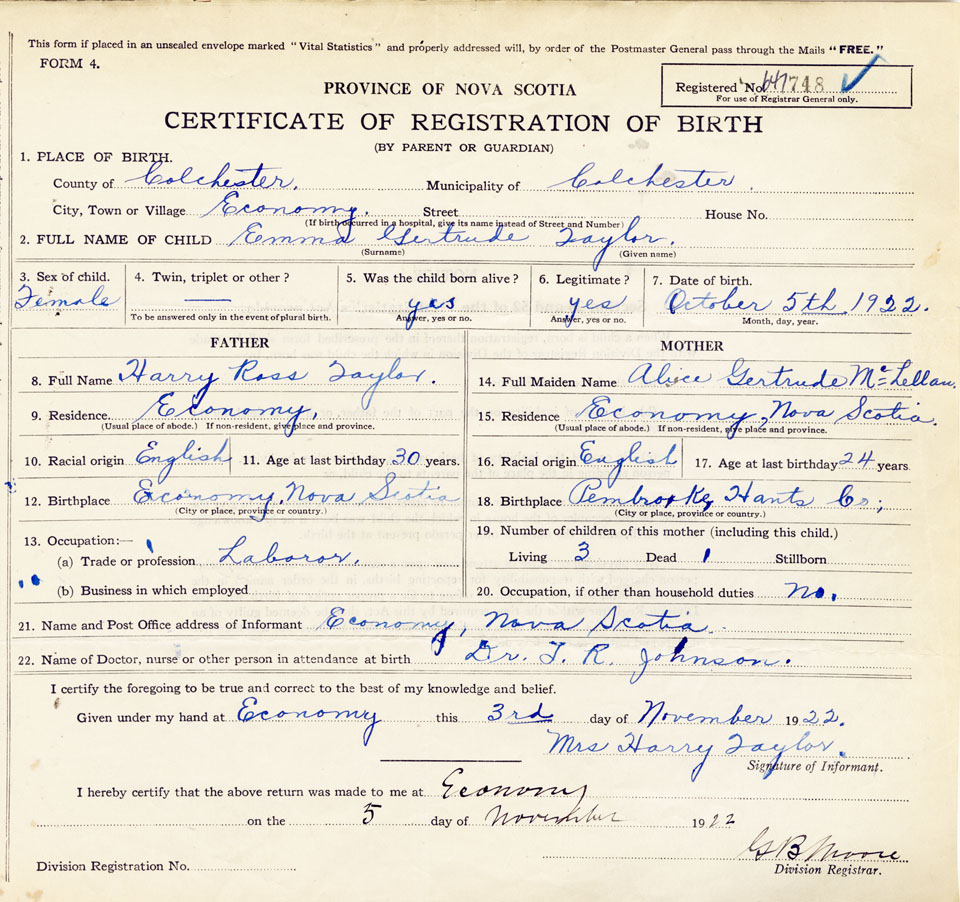 This form if placed in an unsealed envelope marked "Vital Statistics" and properly addressed will, by order of the Postmaster General pass through the Mails "FREE."
FORM 4.
Registered No. 647748
For use of Registrar General only.
PROVINCE OF NOVA SCOTIA
CERTIFICATE OF REGISTRATION OF BIRTH
(BY PARENT OR GUARDIAN)
1. PLACE OF BIRTH.
County of Colchester. Municipality of Colchester.
City, Town or Village Economy. Street House No.
(If birth occurred in a hospital, give its name instead of Street and Number)
2. FULL NAME OF CHILD Emma Gertrude Taylor.
(Surname) (Given name)
3. Sex of child. 4. Twin, triplet or other? 5. Was the child born alive? 6. Legitimate? 7. Date of birth.
Female — yes yes October 5th 1922.
To be answered only in the event of plural birth. Answer, yes or no. Answer, yes or no. Month, day, year.
FATHER MOTHER
8. Full Name Harry Ross Taylor. 14. Full Maiden Name Alice Gertrude McLellan.
9. Residence. Economy. 15. Residence Economy, Nova Scotia.
(Usual place of abode.) If non-resident, give place and province. (Usual place of abode.) If non-resident, give place and province.
10. Racial origin English 11. Age at last birthday 30 years. 16. Racial origin English 17. Age at last birthday 24 years.
12. Birthplace Economy, Nova Scotia 18. Birthplace Pembrooke, Hants Co;
(City or place, province or country.) (City or place, province or country.)
13. Occupation:— 19. Number of children of this mother (including this child.)
(a) Trade or profession Laboror. Living 3 Dead 1 Stillborn
(b) Business in which employed 20. Occupation, if other than household duties No.
21. Name and Post Office address of Informant Economy, Nova Scotia.
22. Name of Doctor, nurse or other person in attendance at birth Dr. T. R. Johnson.
I certify the foregoing to be true and correct to the best of my knowledge and belief.
Given under my hand at Economy this 3rd day of November 1922.
Mrs Harry Taylor.
Signature of Informant.
I hereby certify that the above return was made to me at Economy
on the 5 day of November 1922
G B Moore
Division Registration No. Division Registrar.